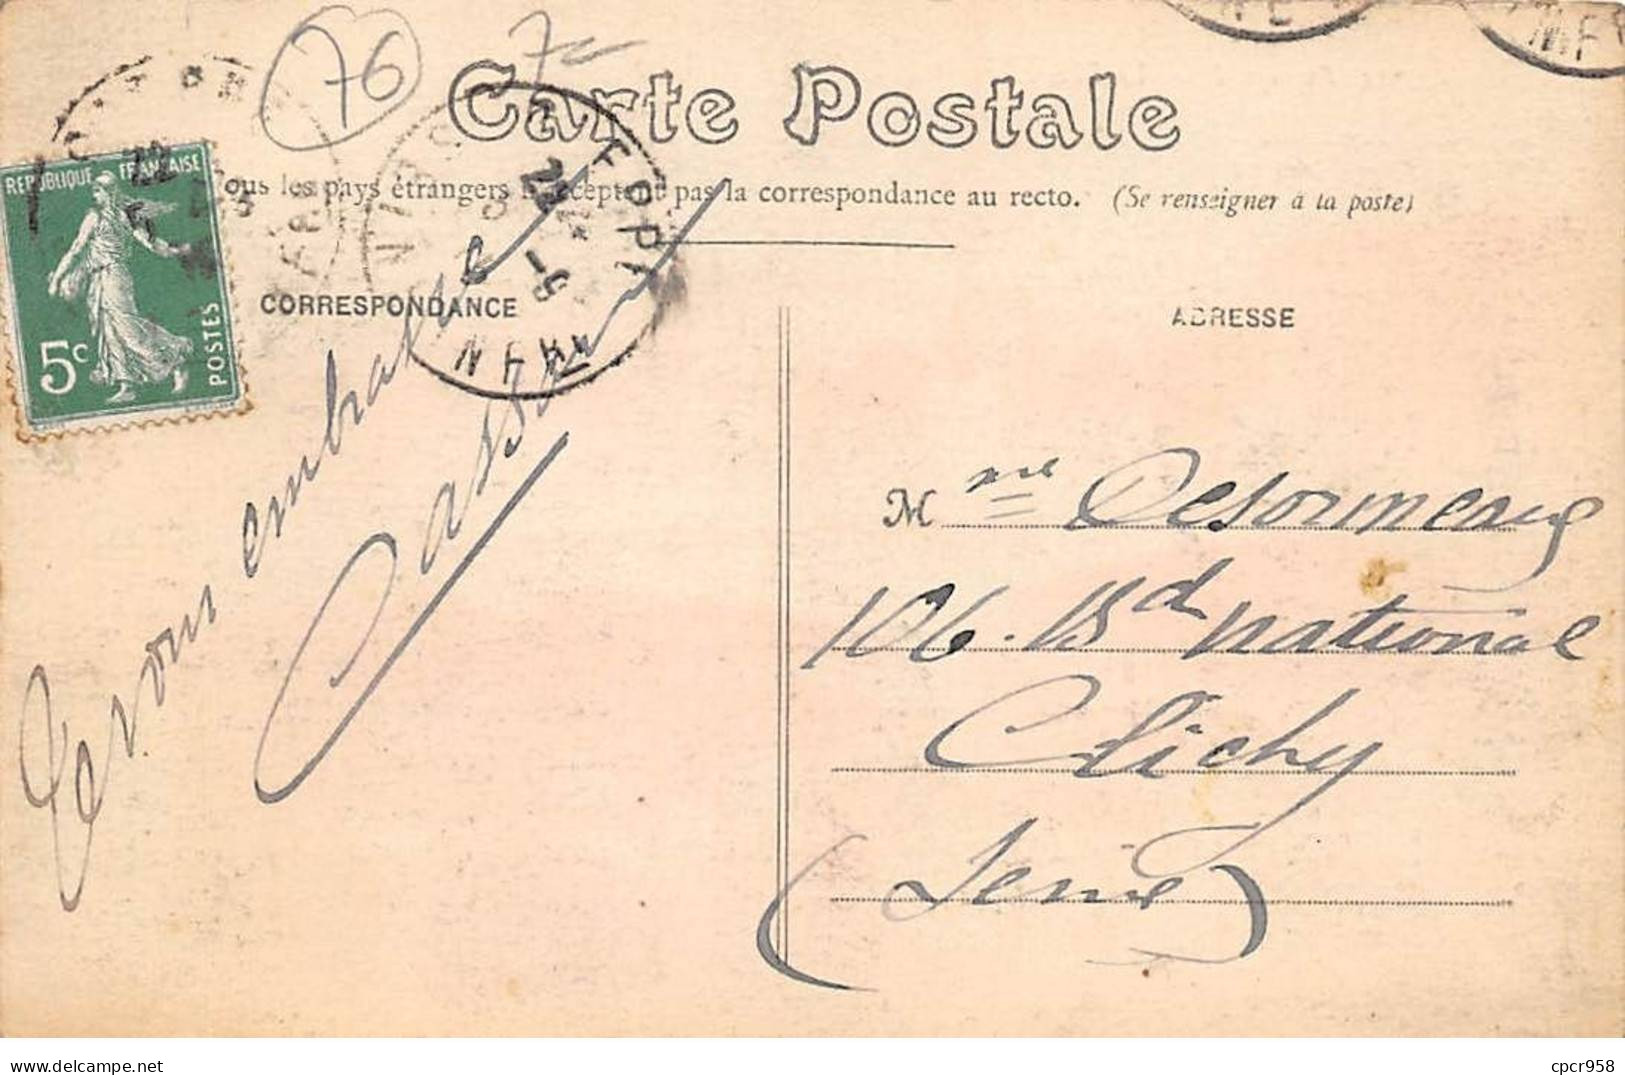 76
Carte Postale
ous les pays étrangers n'acceptent pas la correspondance au recto. (Se renseigner à la poste)
REPUBLIQUE FRANÇAISE
5c
POSTES
22
CORRESPONDANCE
ADRESSE
vous embrasse
Mme Desormeaux
106 Bd National
Clichy
(Seine)
cpcr958